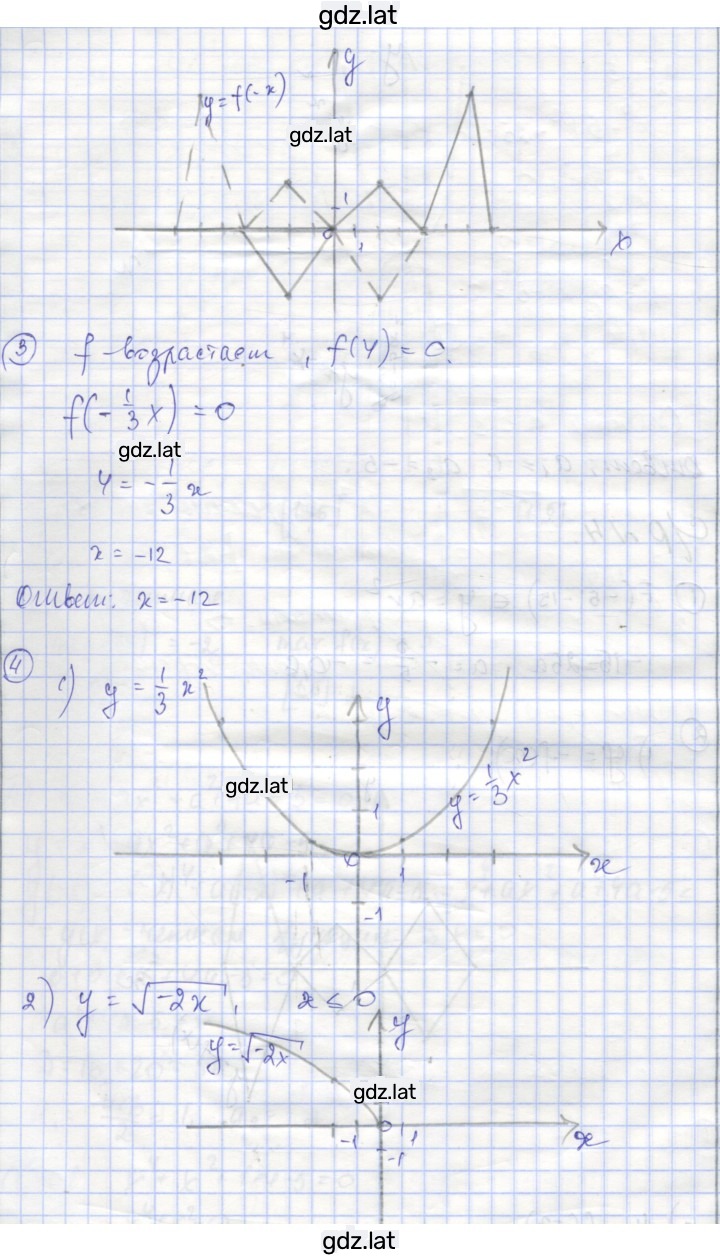 gdz.lat
y
y = f(-x)
gdz.lat
1
0 1 x
③ f - возрастает, f(4) = 0.
f(-1/3 x) = 0
gdz.lat
4 = -1/3 x
x = -12
Ответ: x = -12
④
1) y = 1/3 x²
y
gdz.lat
y = 1/3 x²
1
-1 0 1 x
-1
2) y = √-2x, x ≤ 0
y
y = √-2x
gdz.lat
0
-1 1 x
-1
gdz.lat